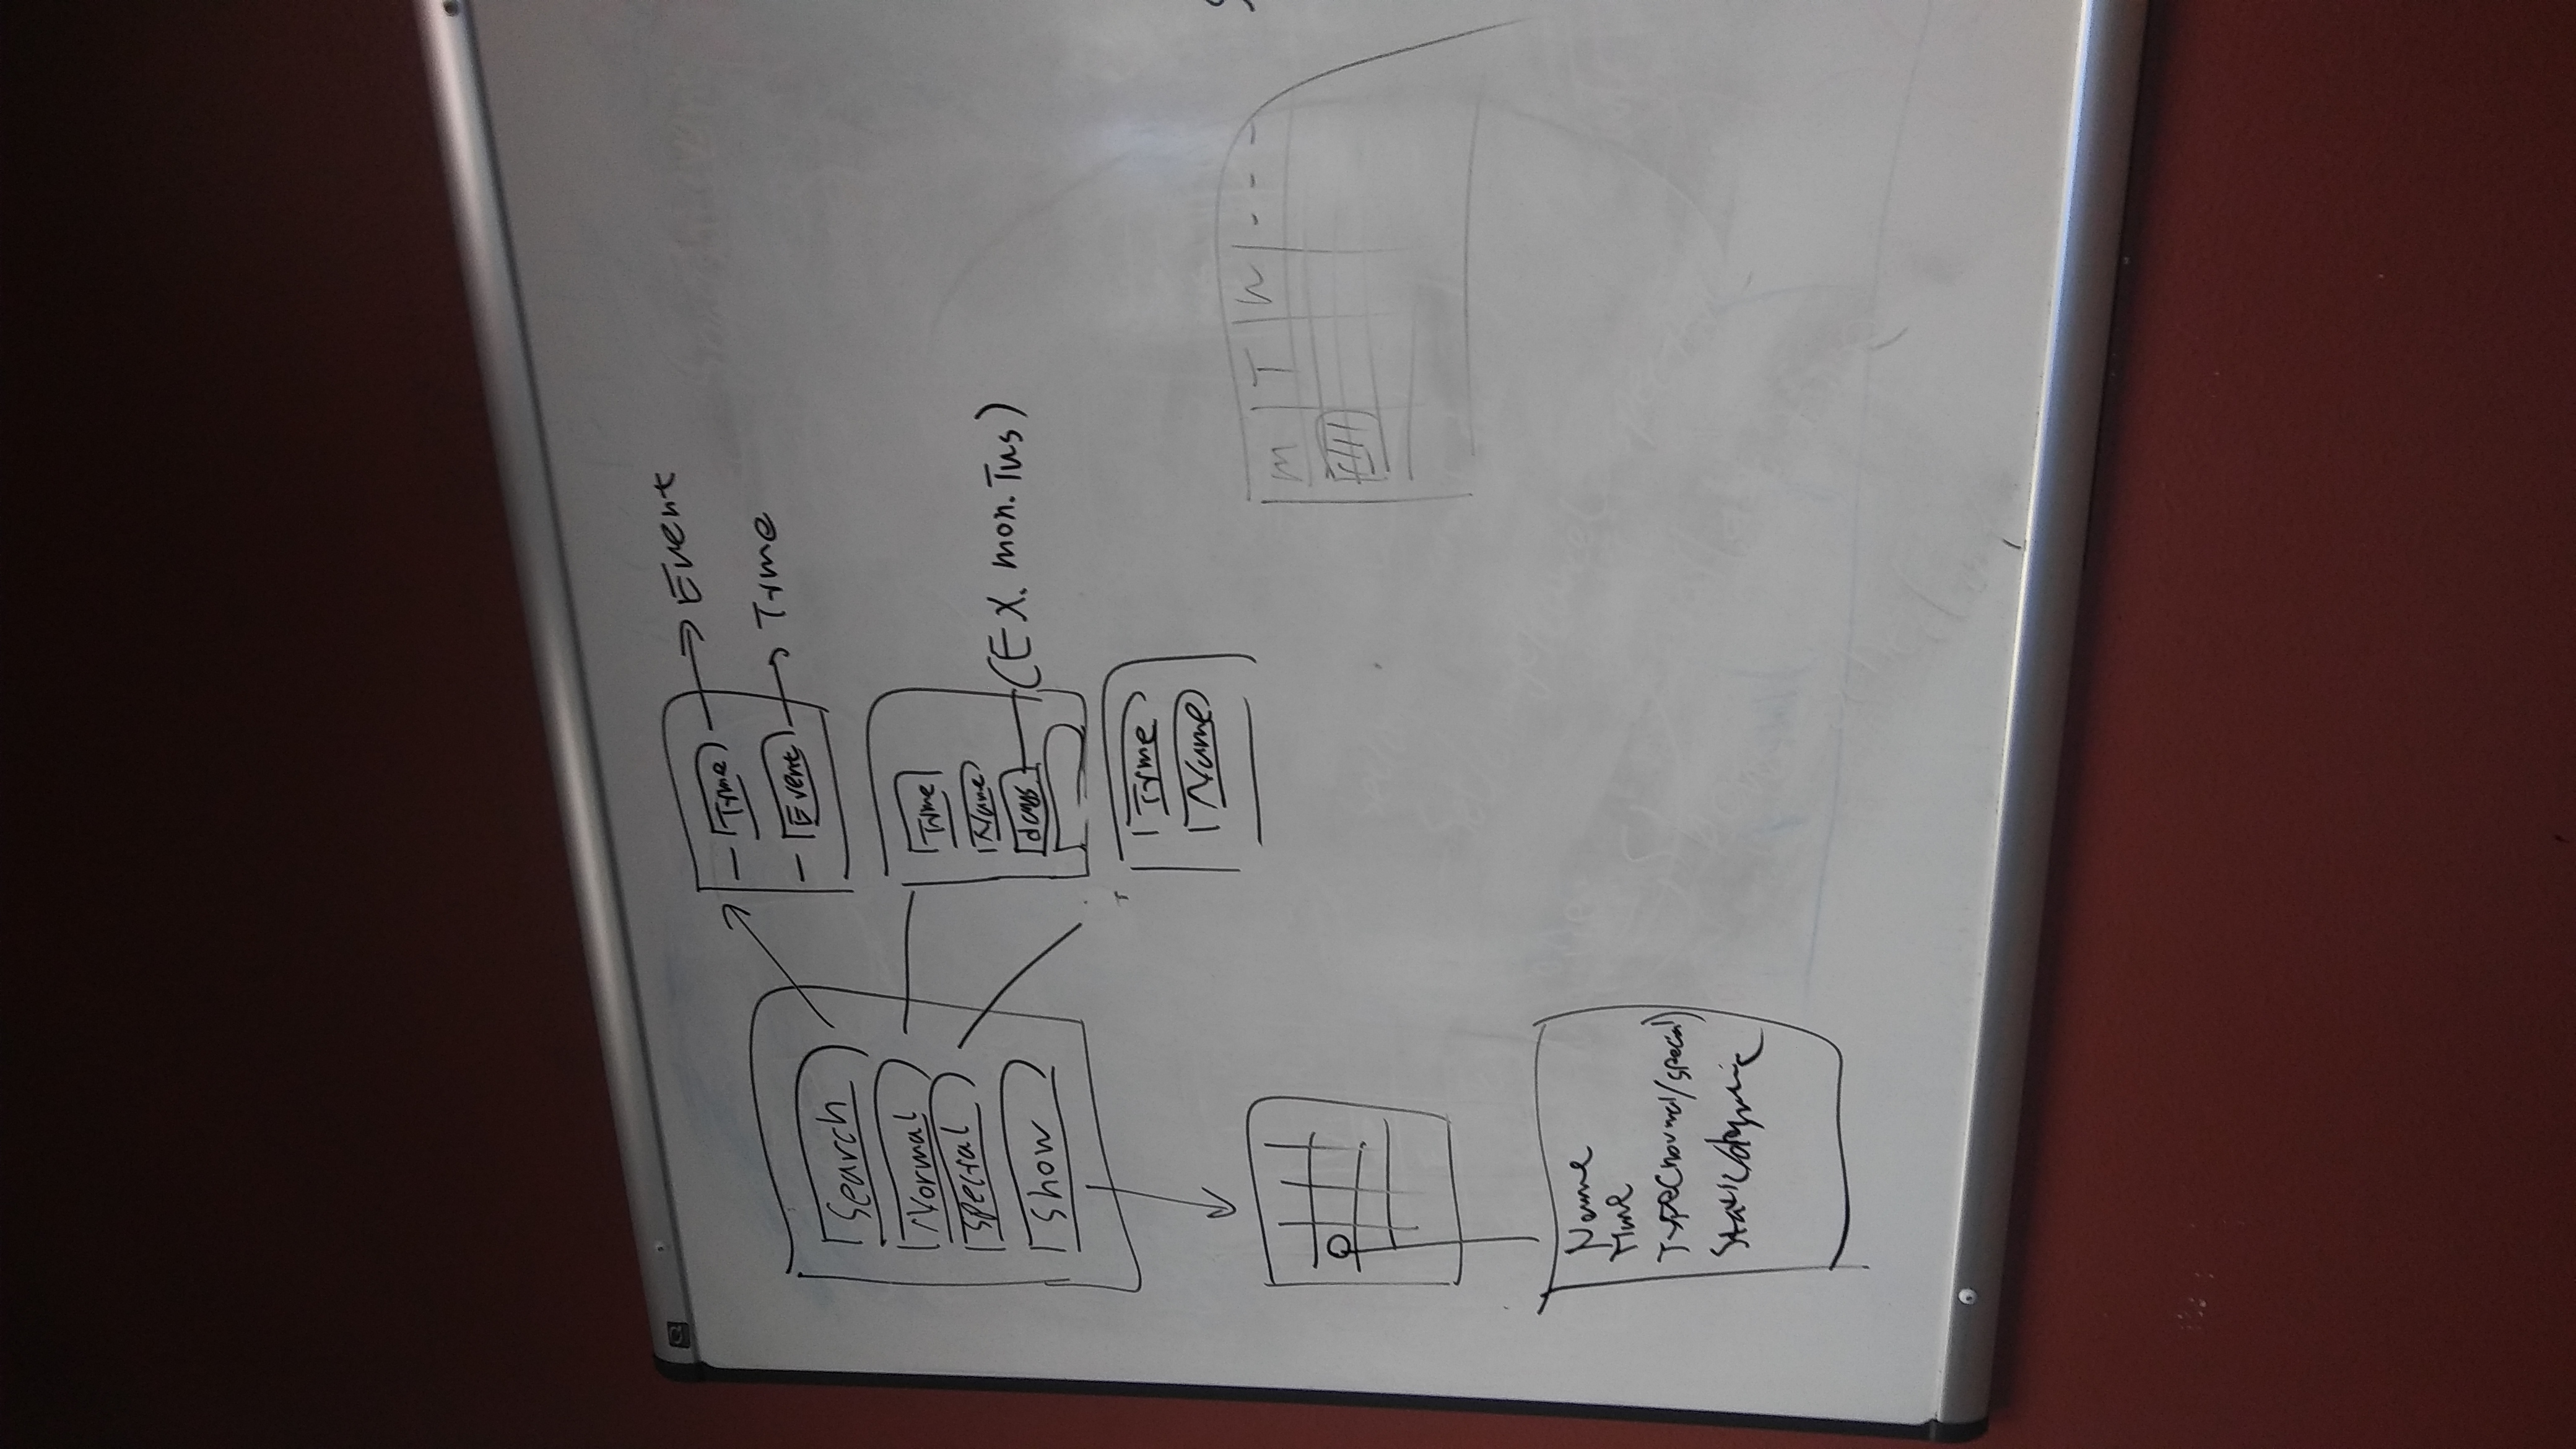 Search
Normal
Special
Show
Time
Event
Event
Time
Time
Name
days
(EX. mon. Tus)
Time
Name
M T W - - -
Name
Time
Type(normal/special)
Static/dynamic